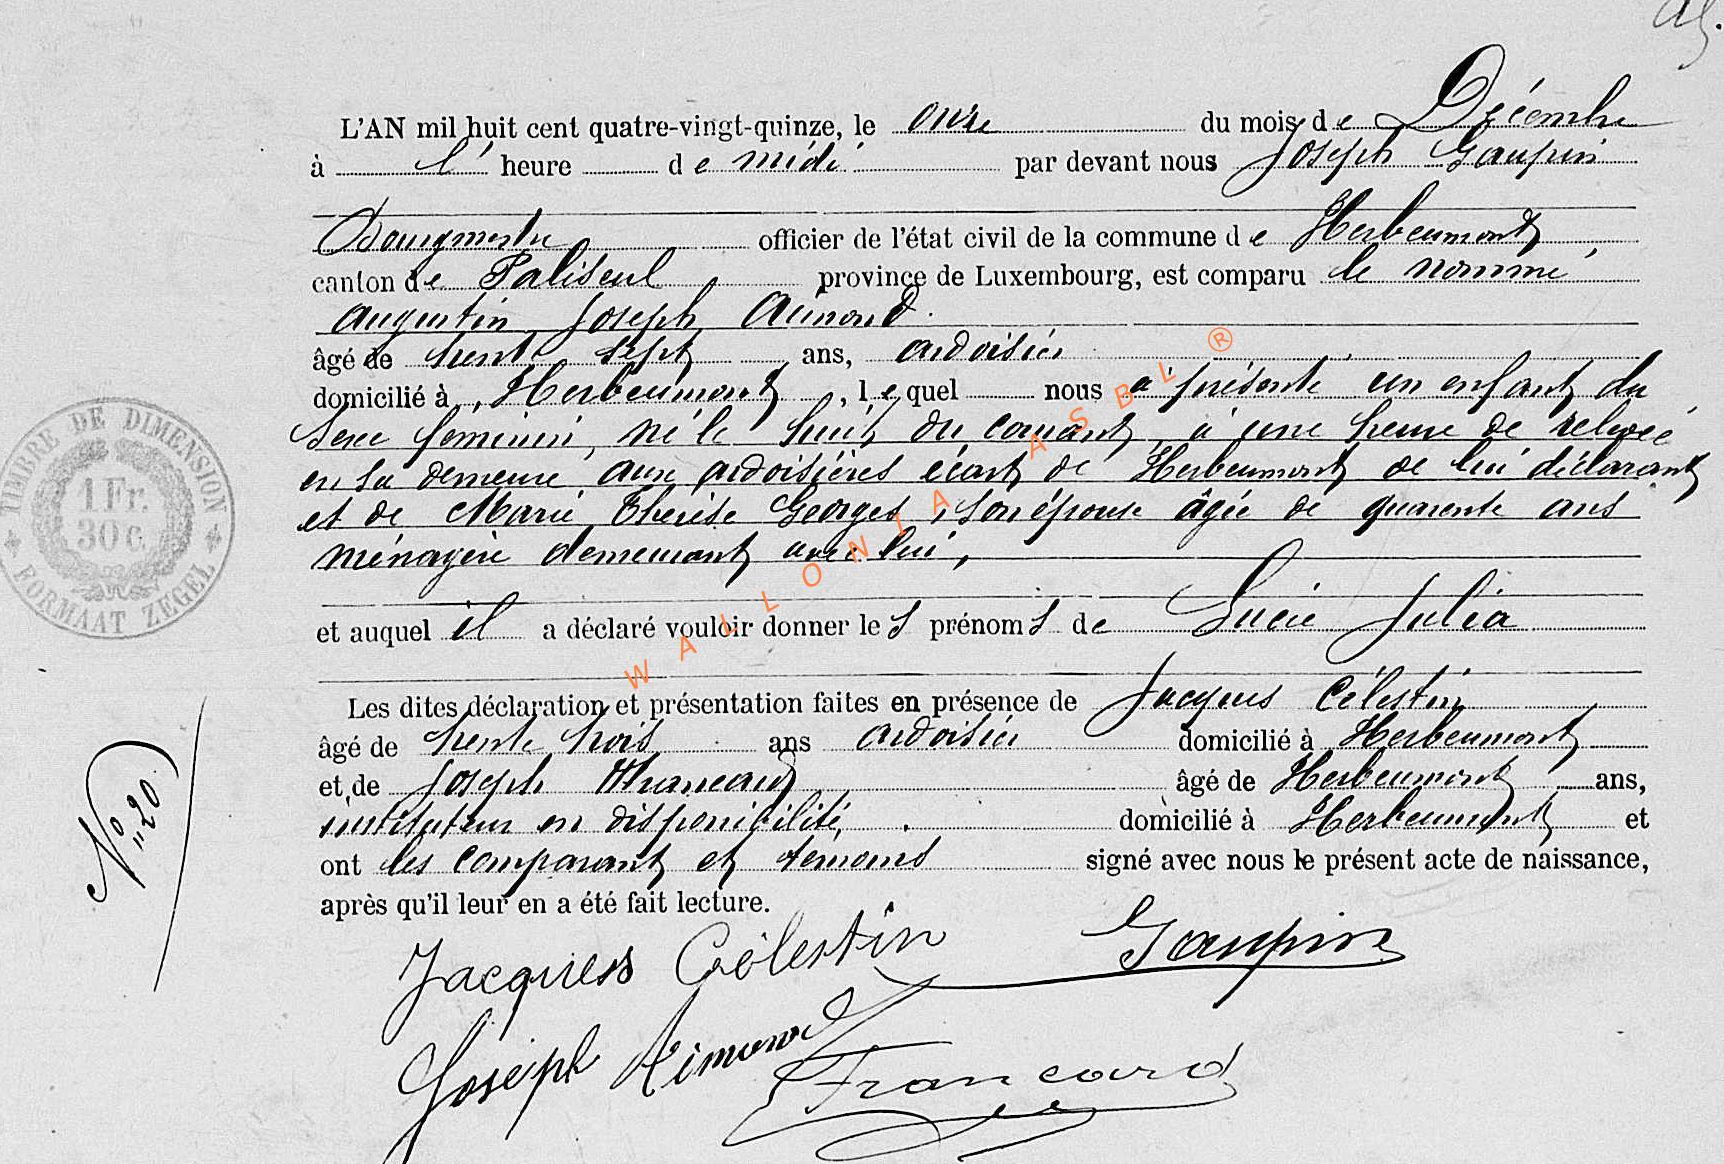 L'AN mil huit cent quatre-vingt-quinze, le onze du mois de Décembre
à l' heure de midi par devant nous Joseph Gaupin
Bourgmestre officier de l'état civil de la commune de Herbeumont,
canton de Paliseul province de Luxembourg, est comparu le nommé
Augustin Joseph Aimond
âgé de trente sept ans, ardoisier
domicilié à Herbeumont, lequel nous a présenté un enfant du
sexe feminin, né le huit du courant à une heure de relevée
en sa demeure aux ardoisières écart de Herbeumont de lui déclarant
et de Marie Thérèse Georges, son épouse âgée de quarente ans
ménagère demeurant avec lui,
et auquel il a déclaré vouloir donner les prénoms de Lucie Julia
Les dites déclaration et présentation faites en présence de Jacques Célestin
âgé de trente trois ans ardoisier domicilié à Herbeumont
et de Joseph âgé de Herbeumont ans,
instituteur en disponibilité, domicilié à Herbeumont et
ont les comparant et témoins signé avec nous le présent acte de naissance,
après qu'il leur en a été fait lecture.
Jacques Célestin Gaupin
Joseph Aimond
Francard
N° 120
TIMBRE DE DIMENSION
1 Fr.
30 c.
FORMAAT ZEGEL
WALLONIA ASBL ®